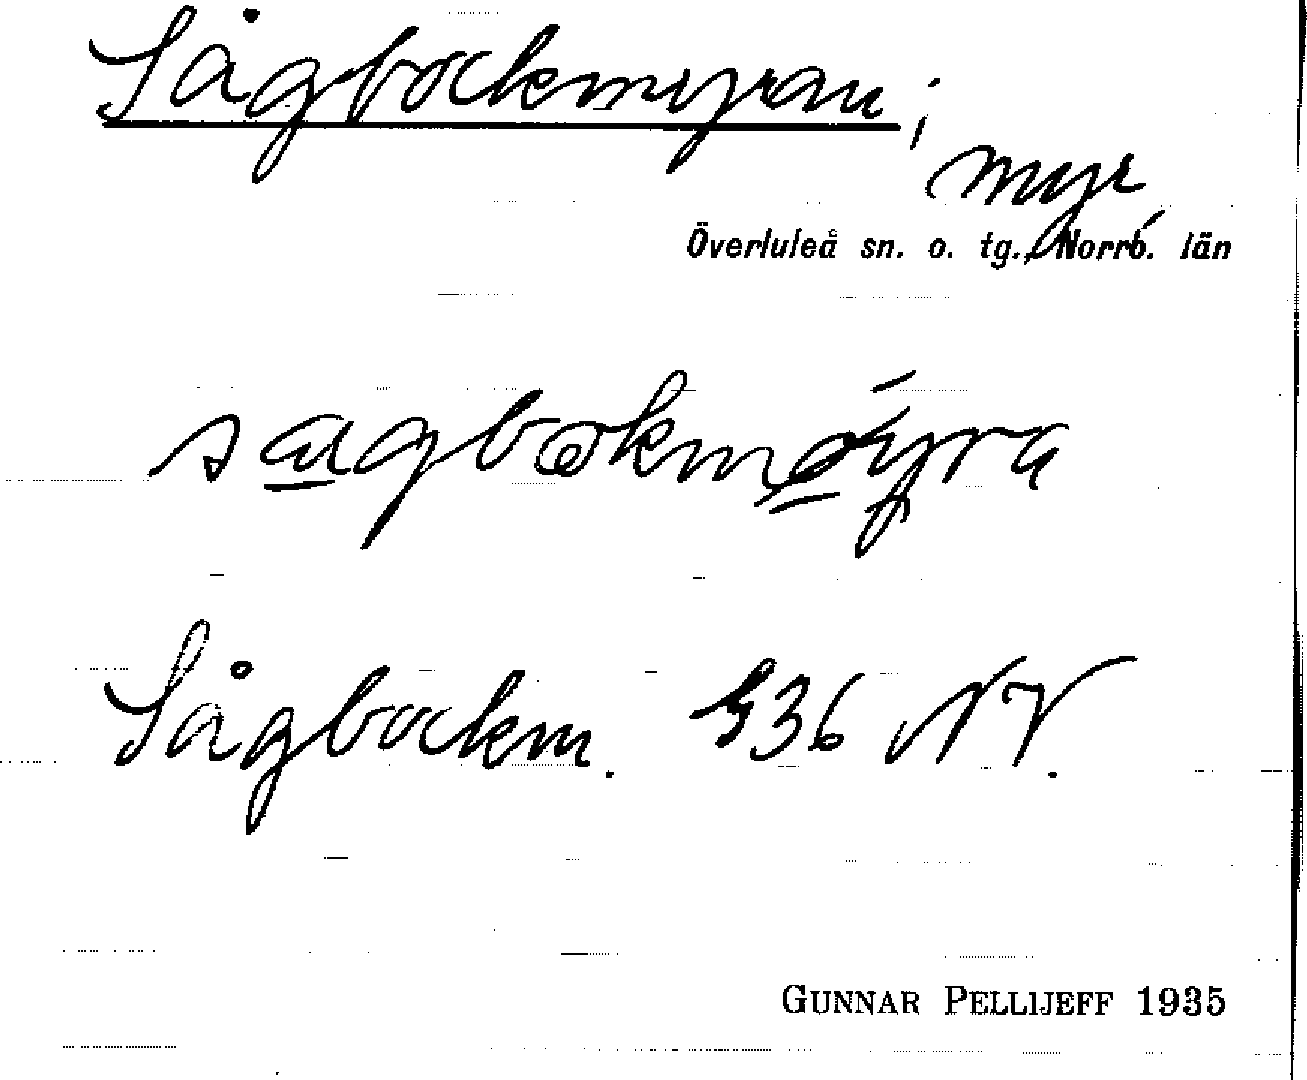 Sågbockmyran;
myr
Överluleå sn. o. tg., Norrb. län
Sågbockm. G36 NV.
GUNNAR PELLIJEFF 1935